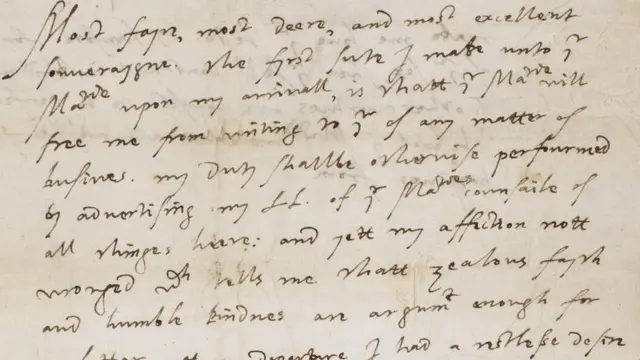 Most faire, most deere, and most excellent
souveraigne. the first sute I make unto yr
Matie upon my arrivall, is thatt yr Matie will
free me from writing to yr of any matter of
busines. my duty shallbe otherwise perfourmed
by advertising my LL. of yr Maties counsaile of
all thinges heere: and yett my affection nott
wronged wch tells me thatt zealous fayth
and humble kindnes are argumt enough for
I had a restlesse desire